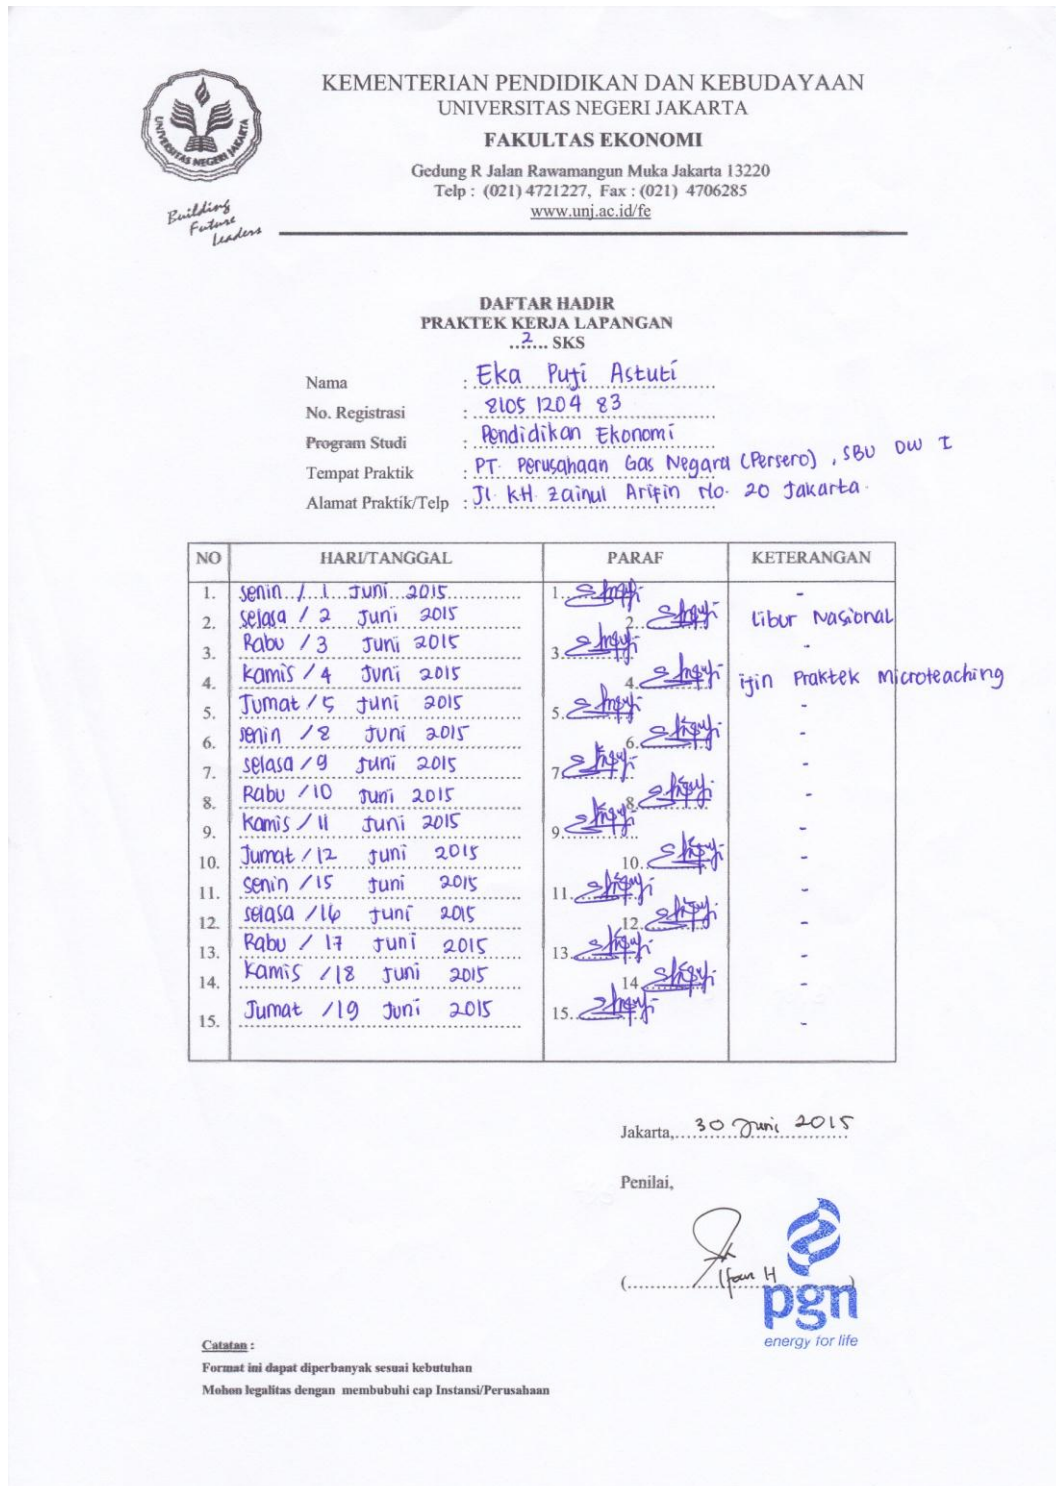 KEMENTERIAN PENDIDIKAN DAN KEBUDAYAAN
UNIVERSITAS NEGERI JAKARTA
FAKULTAS EKONOMI
Gedung R Jalan Rawamangun Muka Jakarta 13220
Telp : (021) 4721227, Fax : (021) 4706285
www.unj.ac.id/fe
UNIVERSITAS NEGERI JAKARTA
Building
Future
Leaders
DAFTAR HADIR
PRAKTEK KERJA LAPANGAN
...2.... SKS
Nama : Eka Puji Astuti
No. Registrasi : 8105 1204 83
Program Studi : Pendidikan Ekonomi
Tempat Praktik : PT. Perusahaan Gas Negara (Persero), SBU DW I
Alamat Praktik/Telp : Jl. KH. Zainul Arifin No. 20 Jakarta.
NO HARI/TANGGAL PARAF KETERANGAN
1. Senin / 1 Juni 2015 1. -
2. Selasa / 2 Juni 2015 2. Libur Nasional
3. Rabu / 3 Juni 2015 3. -
4. Kamis / 4 Juni 2015 4. ijin Praktek Microteaching
5. Jumat / 5 Juni 2015 5. -
6. Senin / 8 Juni 2015 6. -
7. Selasa / 9 Juni 2015 7. -
8. Rabu / 10 Juni 2015 8. -
9. Kamis / 11 Juni 2015 9. -
10. Jumat / 12 Juni 2015 10. -
11. Senin / 15 Juni 2015 11. -
12. Selasa / 16 Juni 2015 12. -
13. Rabu / 17 Juni 2015 13. -
14. Kamis / 18 Juni 2015 14. -
15. Jumat / 19 Juni 2015 15. -
Jakarta, 30 Juni 2015
Penilai,
(Ifan H)
pgn
energy for life
Catatan :
Format ini dapat diperbanyak sesuai kebutuhan
Mohon legalitas dengan membubuhi cap Instansi/Perusahaan